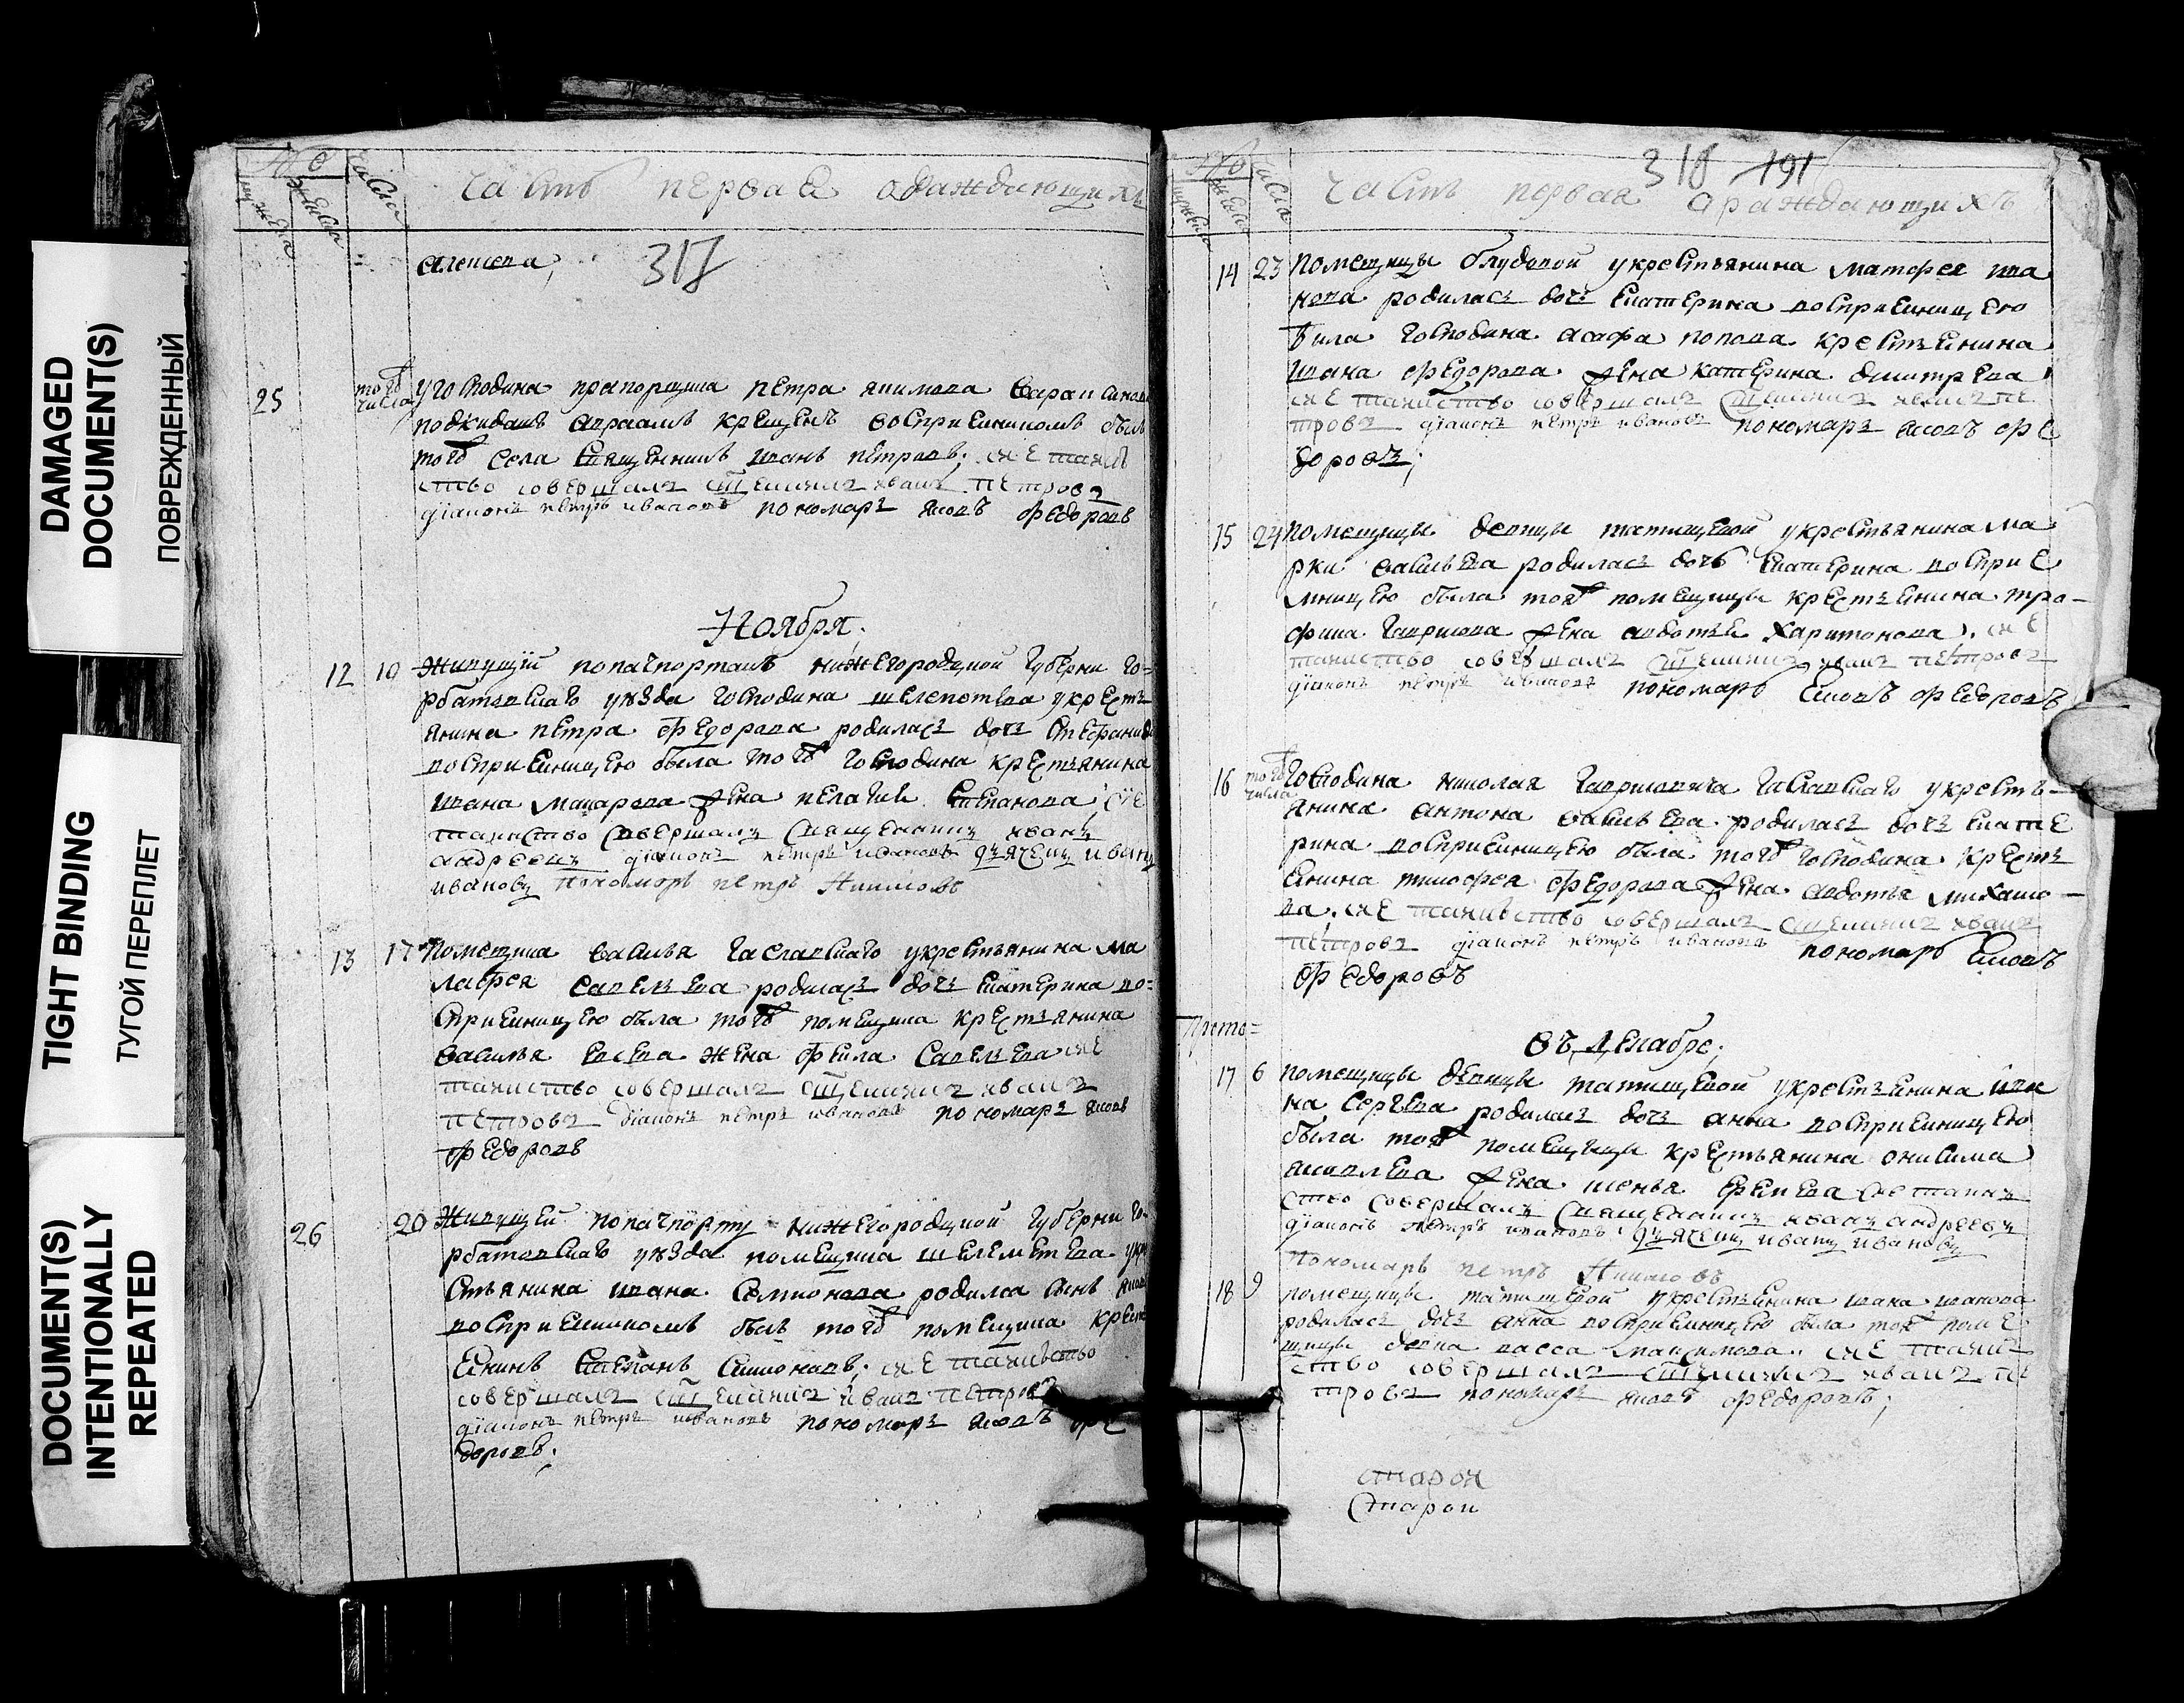 DAMAGED
DOCUMENT(S)
ПОВРЕЖДЕННЫЙ
TIGHT BINDING
ТУГОЙ ПЕРЕПЛЕТ
DOCUMENT(S)
INTENTIONALLY
REPEATED
№
мужеска
женска
числа
часть первая о раждающихъ
317
25
того числа
У господина прапорщика петра якимова
подкидашъ авраамъ крещенъ восприемникомъ былъ
того села священникъ иванъ петровъ; сие таин
ство совершалъ священникъ иванъ петровъ
діаконъ петръ ивановъ пономарь яковъ федоровъ
Ноября.
12 10 Живущій попачпортамъ нижегородцкой губерни го=
рбатовскаго уѣзда господина шелепотева укресть
янина петра федорова родилась дочь стефанида
восприемницею была того господина крестьянина
ивана макарова жена пелагия степанова; сіе
таинство совершалъ священникъ иванъ
андреевъ діаконъ петръ ивановъ дьячекъ иванъ
ивановъ пономарь петръ
13 17 Помещика василья укрестьянина ма
лафея савельева родилась дочь екатерина во=
сприемницею была того помещика крестьянина
василья евсева жена фекла савельева сие
таинство совершалъ священникъ иванъ
петровъ діаконъ петръ ивановъ пономарь яковъ
федоровъ
26 20 Живущей попачпорту нижегородцкой губерни го
рбатовскаго уѣзда помещика шелеметева укре
стьянина ивана семионова родился сынъ
восприемникомъ былъ того помещика крест
еянинъ степанъ симионовъ; сие таинство
совершалъ священникъ иванъ петровъ
діаконъ петръ ивановъ пономарь яковъ фе
доровъ;
№
мужеска
женска
числа
318 191
часть первая о раждающихъ
14 23 помещицы блудовой укрестьянина матфея ива
нова родилась дочь екатерина восприемницею
была господина асафа попова крестьянина
ивана федорова жена катерина дмитрева
сие таинство совершалъ священникъ иванъ пе
тровъ діаконъ петръ ивановъ пономарь яковъ фе
доровъ;
15 24 помещицы девицы татищевой укрестьянина ма
рки васильева родилась дочь екатерина восприе
мницею была тоя помещицы крестьянина тро-
фима гаврилова жена авдотья харитонова. сие
таинство совершалъ священникъ иванъ петровъ
діаконъ петръ ивановъ пономарь яковъ федоровъ
16 того числа
господина николая гавриловича укресть-
янина антона васильева родилась дочь екате
рина восприемницею была того господина кресть
еянина тимофея федорова жена авдотья михайло-
ва. сие таинство совершалъ священникъ иванъ
петровъ діаконъ петръ ивановъ пономарь яковъ
федоровъ
въ декабре;
17 6 помещицы девицы татищевой укрестьянина ива
на сергева родилась дочь анна восприемницею
была тоя помещицы крестьянина онисима
яковлева жена
ство совершалъ священникъ иванъ андреевъ
діаконъ петръ ивановъ дьячекъ иванъ ивановъ
пономарь петръ
18 9 помещицы татищевой укрестьянина ивана иванова
родилась дочь анна восприемницею была тоя поме
щицы девка васса максимова. сие таин
ство совершалъ священникъ иванъ пе
тровъ пономарь яковъ федоровъ;